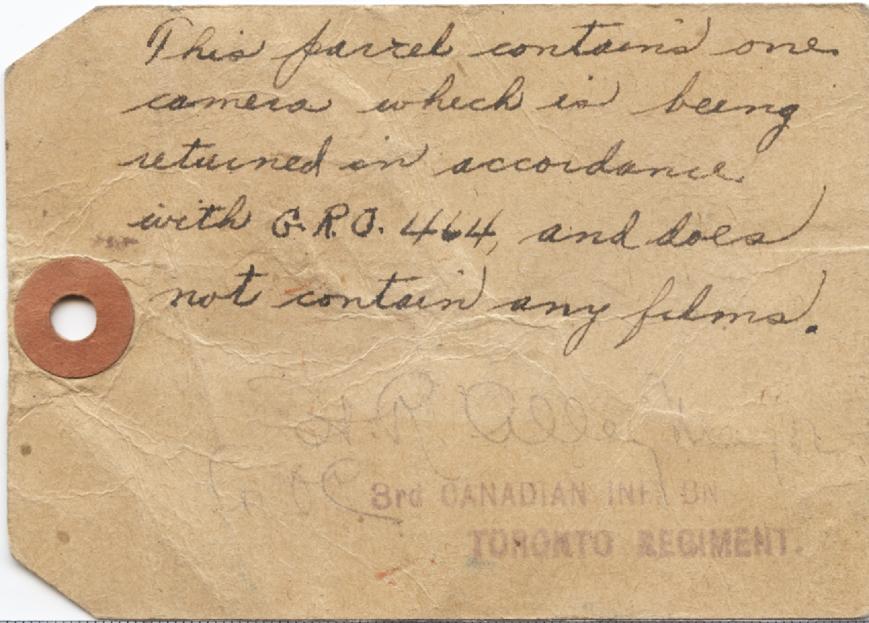 This parcel contains one
camera which is being
returned in accordance
with G.R.O. 464, and does
not contain any films.
3rd CANADIAN INF. BN
TORONTO REGIMENT.